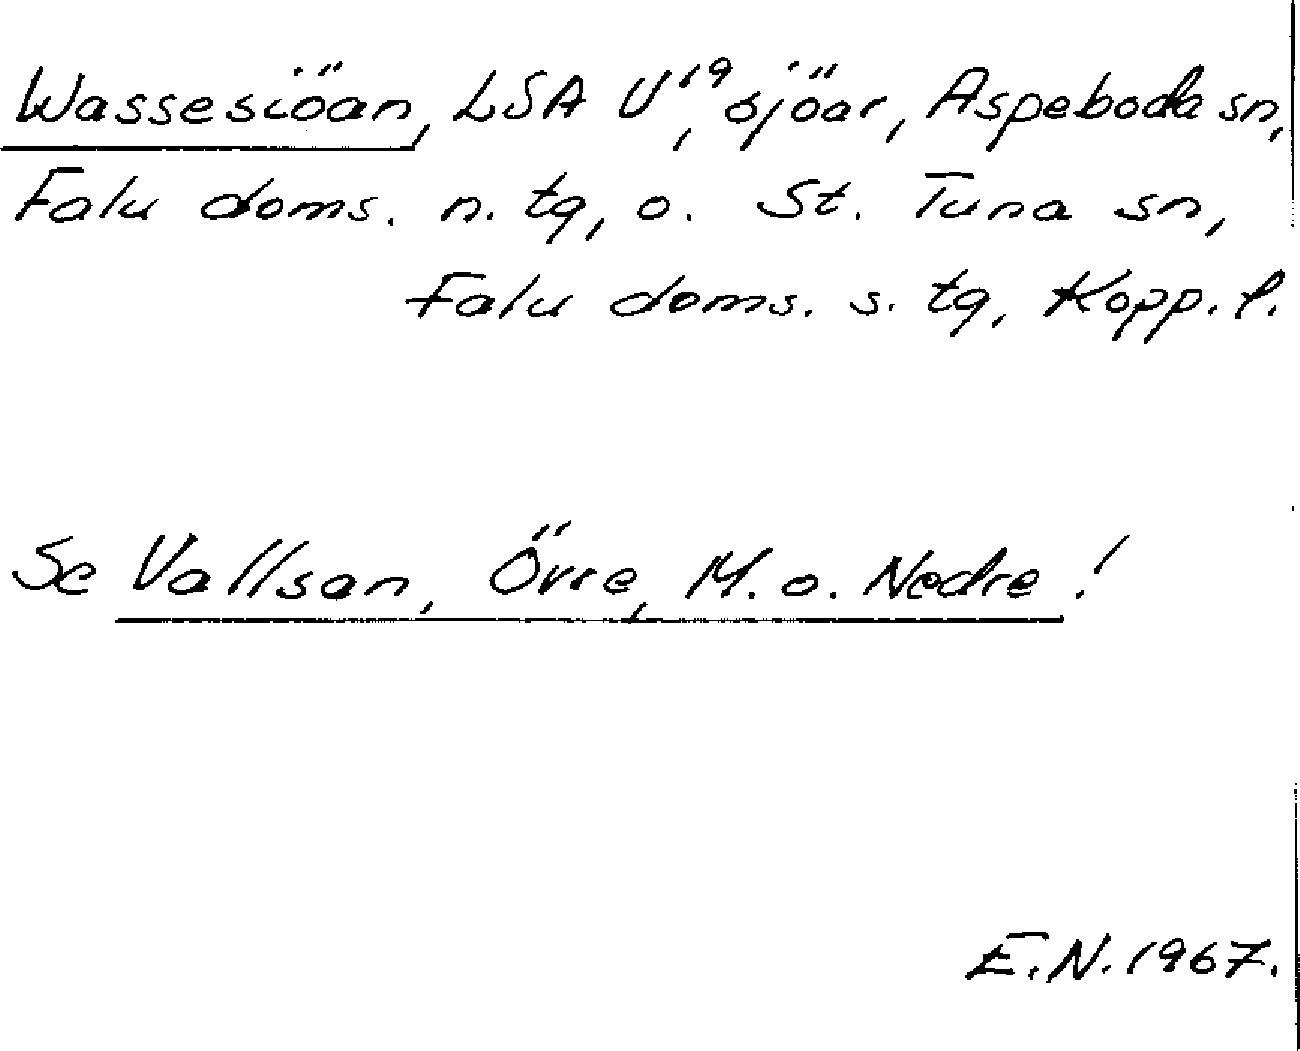 Wassesiöan, LSA U¹⁹, sjöar, Aspeboda sn,
Falu doms. n. tg, o. St. Tuna sn,
Falu doms. s. tg, Kopp. l.
Se Vallsan, Övre, M. o. Nedre!
E.N. 1967.